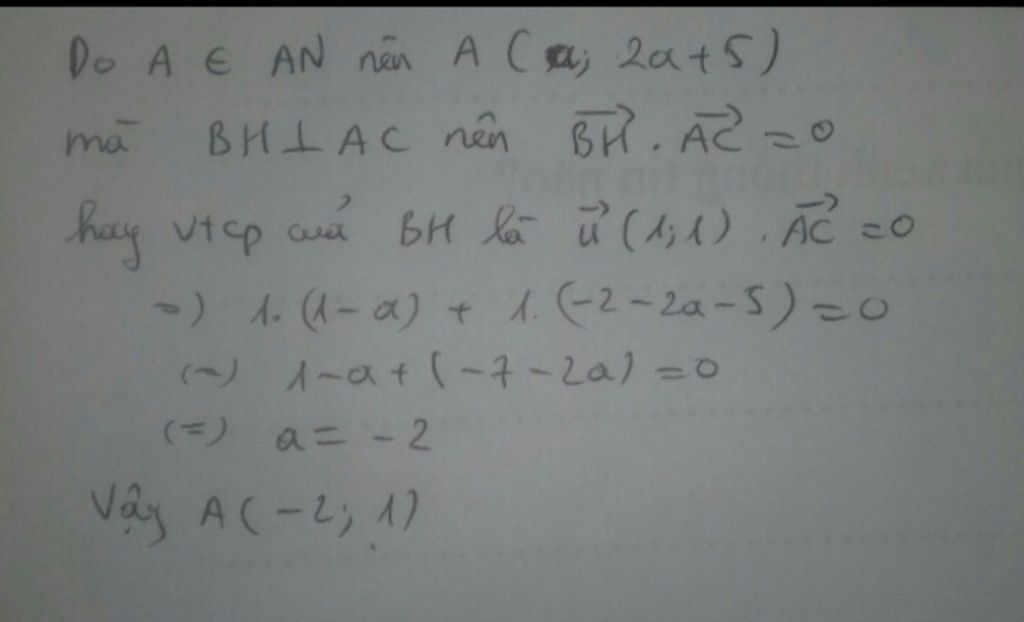 Do A ∈ AN nên A (a; 2a+5)
mà BH ⊥ AC nên \overrightarrow{BH} . \overrightarrow{AC} = 0
hay vtcp của BH là \vec{u} (1;1) . \overrightarrow{AC} = 0
=) 1. (1-a) + 1. (-2-2a-5) = 0
(=) 1-a + (-7-2a) = 0
(=) a = -2
Vậy A (-2; 1)